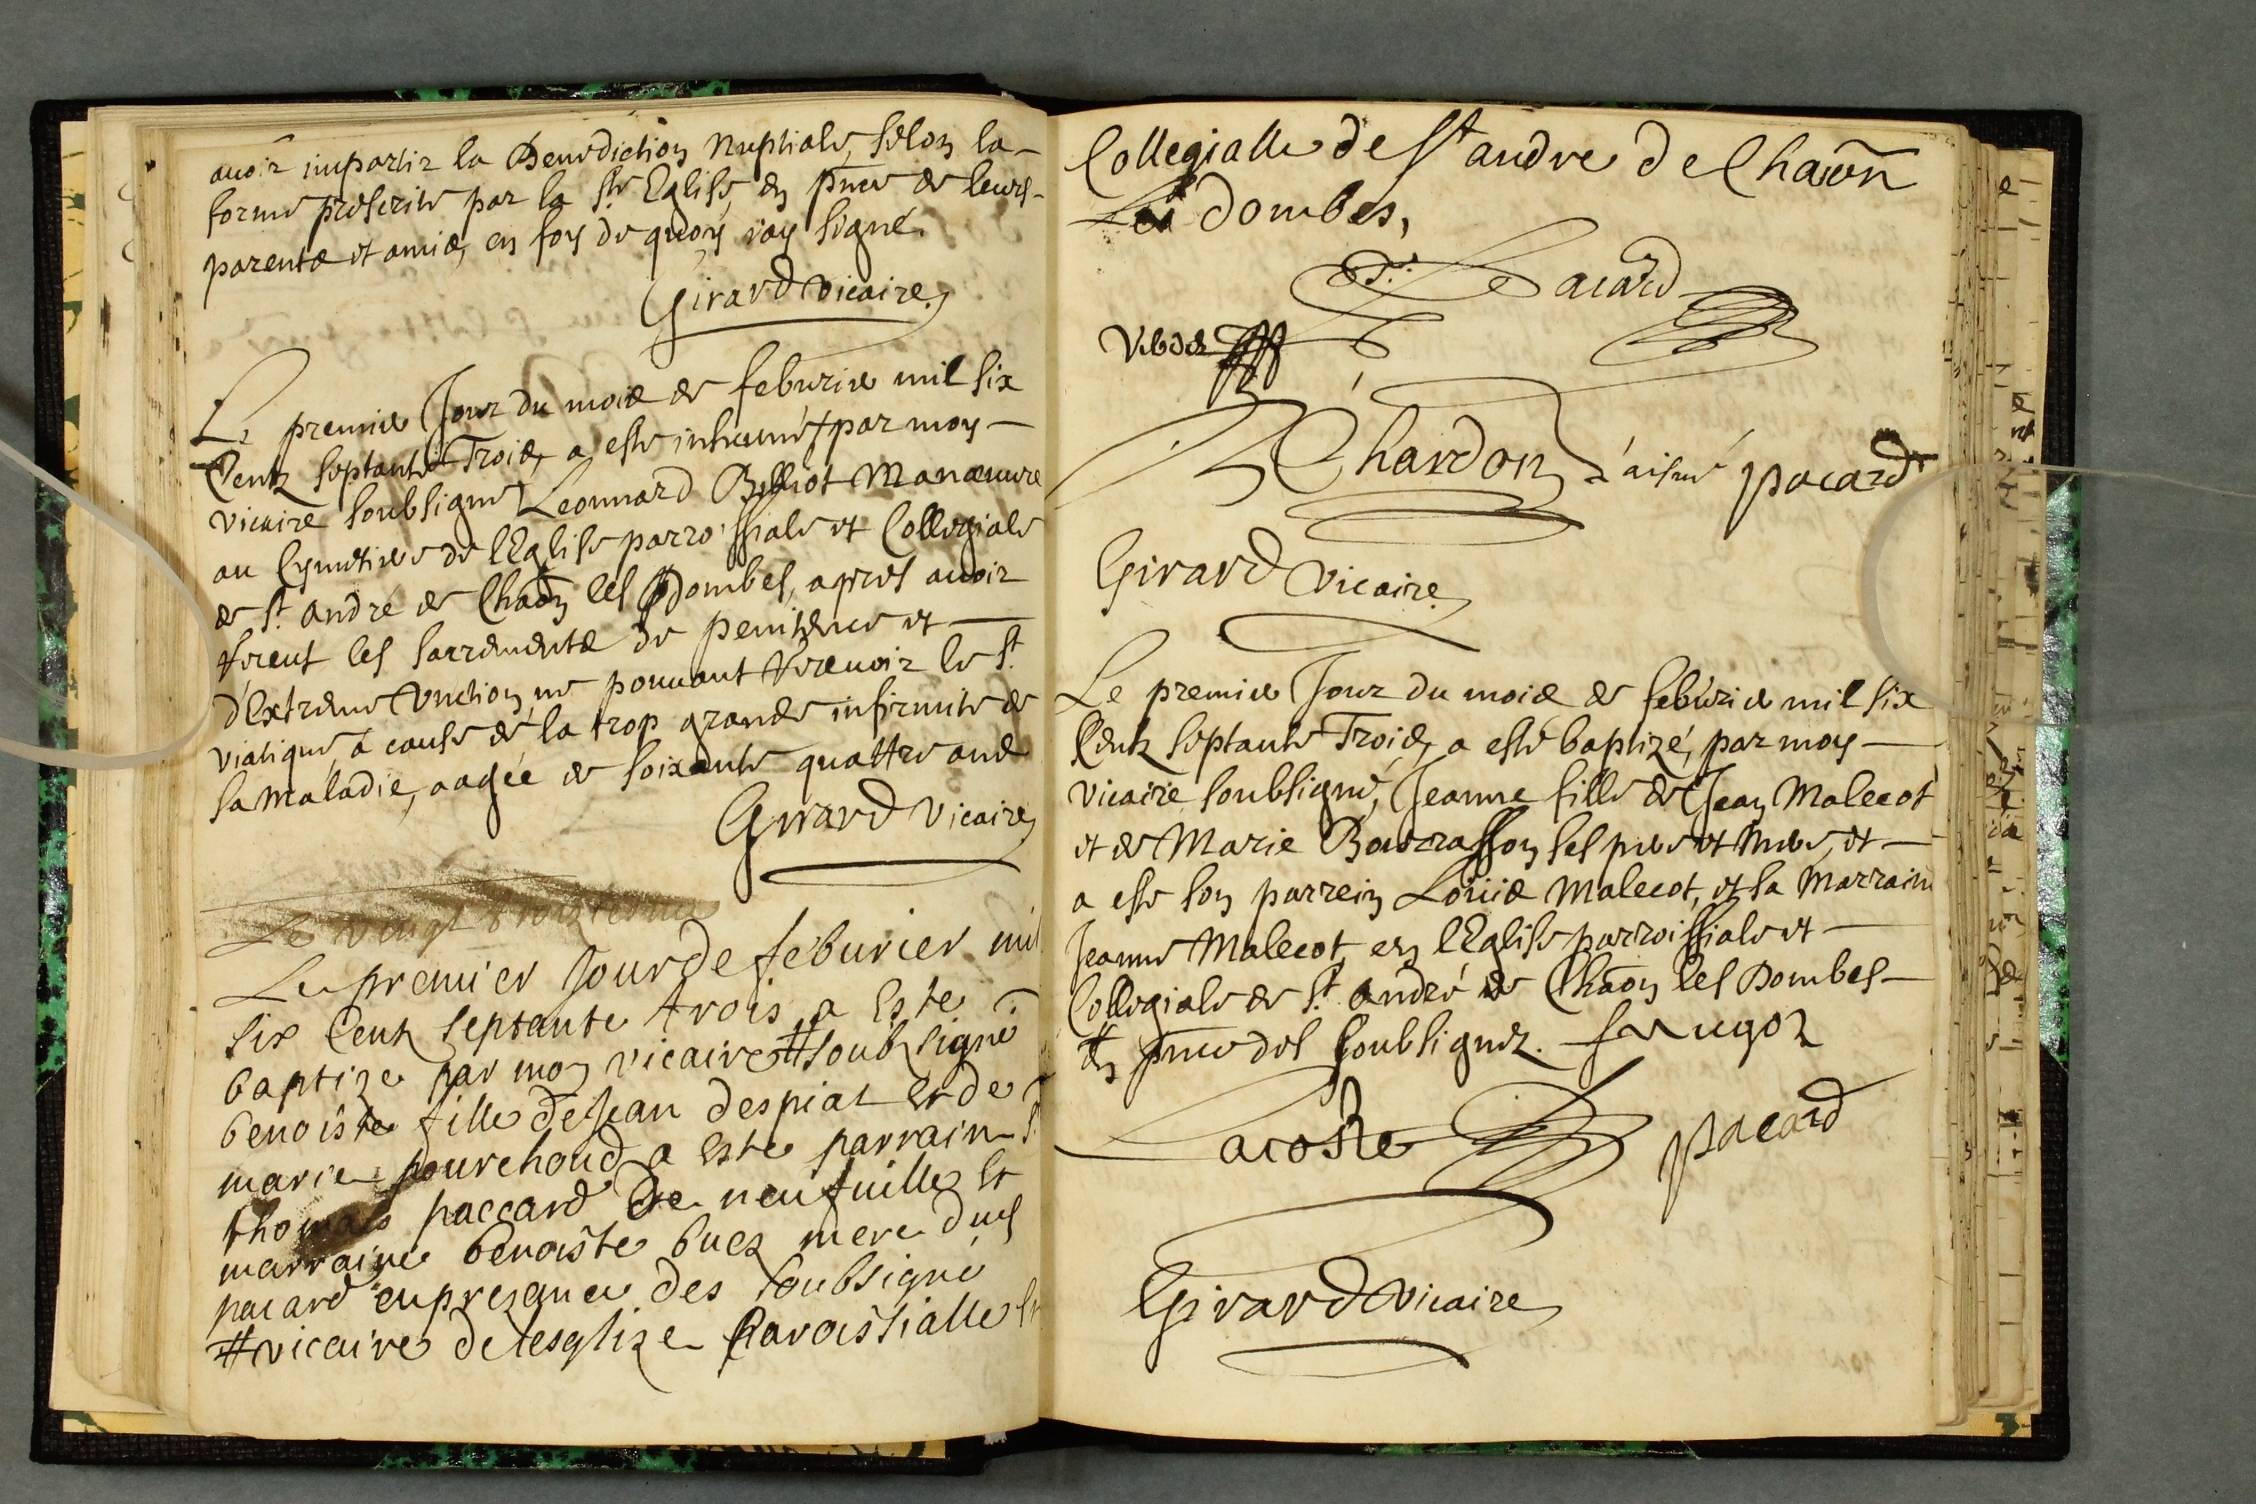 auoir impartir la Benediction Nuptiale, selon la
forme prescrite par la Ste Eglise, en pnce de leurs
parents et amis, en foy de quoy iay signé.
Girard vicaire
Le premier Jour du mois de feburier mil six
Centz septante Trois, a esté inhumé par moy
vicaire soubsigné Leonnard Billiot Manœuure
au Cymetiere de l'Eglise parroissiale et Collegiale
de St. André de Chaõn les Dombes, apres auoir
receut les sacrements de penitence et
d'Extreme Vnction, ne pouuant receuoir le St.
viatique, à cause de la trop grande infirmite de
sa Maladie, aagée de soixante quattre ans
Girard Vicaire
Le vingt
Le premier Jour de feburier mil
six Centz septante trois a Este
baptize par moy vicaire # soubsigné
benoiste fille de Jean despiat et de
marie pourchoud a Este parrain Sr
thomas paccard de neufuille Et
marraine benoiste buez mere dud
pacard en presance des soubsigné
# vicaire de lesglize Paroissialle Et
Collegialle de St andre de Chaõn
les dombes,
Lacard
Chardon l'aisné pacard
Girard vicaire
Le premier Jour du mois de feburier mil six
Centz septante Trois, a esté baptizé, par moy
vicaire soubsigné, Jeanne fille de Jean Malecot
et de Marie Bourrasson ses pere et Mere, et
a esté son parrein Loüis Malecot, et sa Marraine
Jeanne Malecot, en l'Eglise parroissiale et
Collegiale de St. André de Chaõn les Dombes
En pnce des soubsignez.
Lacoste pacard
Girard vicaire